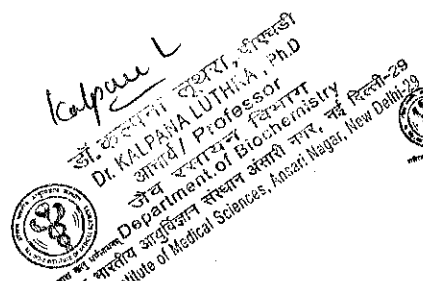 Kalpana L
डॉ. कल्पना लूथरा, पीएचडी
Dr. KALPANA LUTHRA, Ph.D
आचार्य / Professor
जैव रसायन विभाग
Department of Biochemistry
भारतीय आयुर्विज्ञान संस्थान अंसारी नगर, नई दिल्ली-29
Institute of Medical Sciences, Ansari Nagar, New Delhi-29